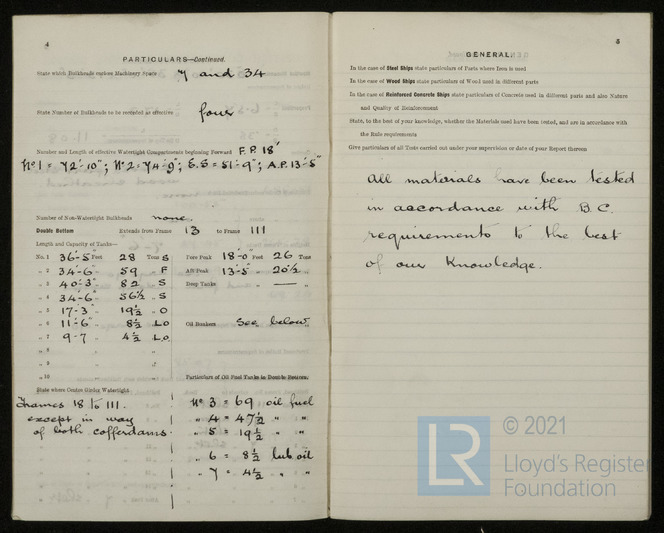 4
PARTICULARS—Continued.
State which Bulkheads enclose Machinery Space 7 and 34
State Number of Bulkheads to be recorded as effective four
Number and Length of effective Watertight Compartments beginning Forward F.P. 18'
No 1 = 72'-10"; No 2 = 74'-9"; E.S = 51'-9"; A.P. 13'-5"
Number of Non-Watertight Bulkheads none.
Double Bottom Extends from Frame 13 to Frame 111
Length and Capacity of Tanks—
No. 1 36'-5" Feet 28 Tons S
„ 2 34'-6" „ 59 „ F
„ 3 40'-3" „ 82 „ S
„ 4 34'-6" „ 56½ „ S
„ 5 17'-3" „ 19½ „ O
„ 6 11'-6" „ 8½ „ L.O
„ 7 9'-7 „ 4½ „ L.O.
„ 8
„ 9
„ 10
Fore Peak 18'-0" Feet 26 Tons
Aft Peak 13'-5" „ 20½ „
Deep Tanks — „
Oil Bunkers See below „
State where Centre Girder Watertight
Frames 18 to 111.
except in way
of both cofferdams.
Particulars of Oil Fuel Tanks in Double Bottom.
No 3 = 69 oil fuel
„ 4 = 47½ „ „
„ 5 = 19½ „ „
„ 6 = 8½ lub oil
„ 7 = 4½ „ „
5
GENERAL.
In the case of Steel Ships state particulars of Parts where Iron is used
In the case of Wood Ships state particulars of Wood used in different parts
In the case of Reinforced Concrete Ships state particulars of Concrete used in different parts and also Nature
and Quality of Reinforcement
State, to the best of your knowledge, whether the Materials used have been tested, and are in accordance with
the Rule requirements
Give particulars of all Tests carried out under your supervision or date of your Report thereon
All materials have been tested
in accordance with B.C.
requirements to the best
of our knowledge.
© 2021
LR
Lloyd's Register
Foundation